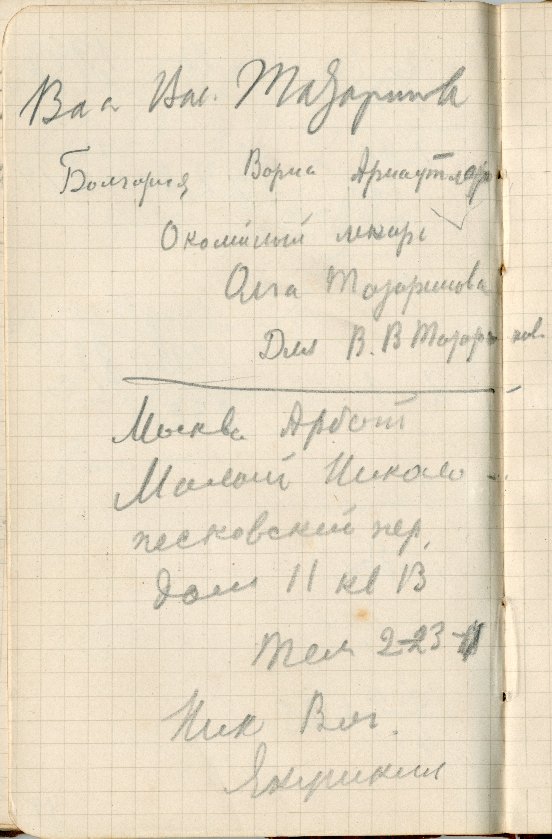 Вал Вас. Тазаринов
Болгария Ворна Арнаутлар
Околийский лекарь
Олга Тазаринова
Для В. В Тазаринов
Москва Арбат
Малый Николо-
песковский пер,
дом 11 кв 13
тел 2-23-
Ник Вяч.